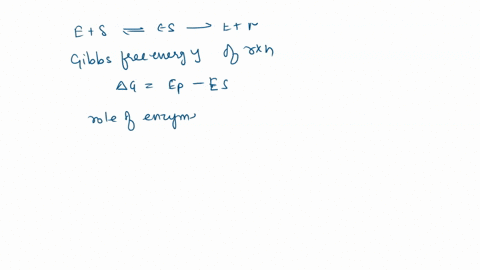 E + S ⇌ ES → E + P
Gibbs free energy of rxn
ΔG = Ep - ES
role of enzym